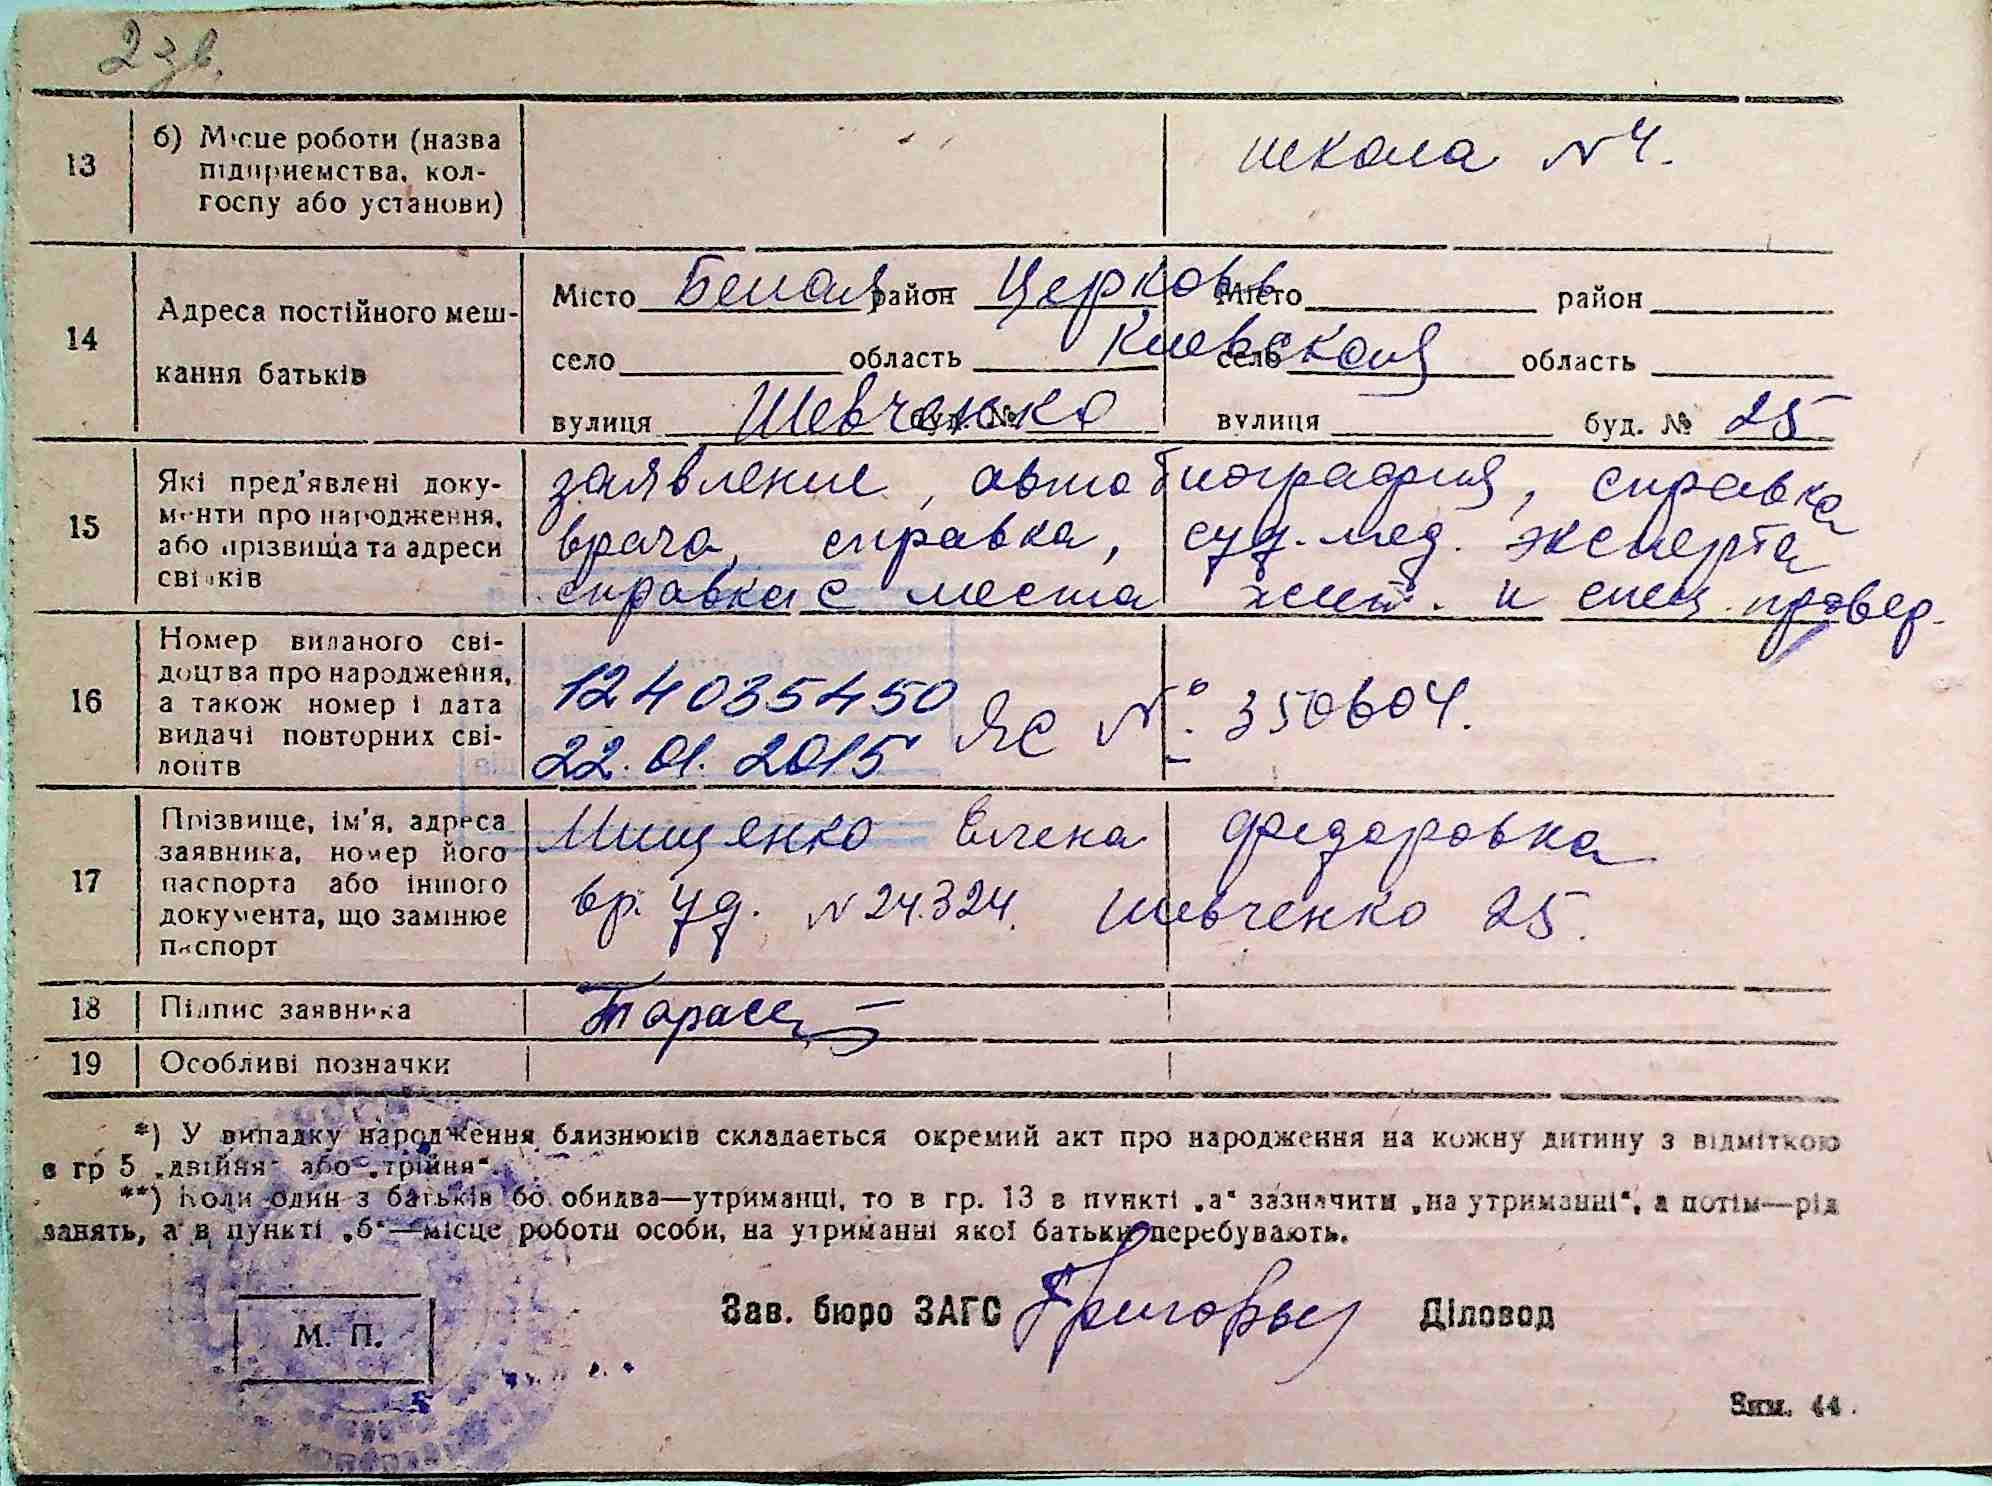 2 зв.
13
б) Місце роботи (назва
підприємства, кол-
госпу або установи)
школа № 4.
14
Адреса постійного меш-
кання батьків
Місто Белая район Церковь Місто район
село область Киевская село область
вулиця Шевченко буд. № вулиця буд. № 25
15
Які пред'явлені доку-
менти про народження,
або прізвища та адреси
свідків
заявление, автобиография, справка
врача, справка, суд. мед. эксперта
справка с места жит. и спец. провер.
16
Номер виданого сві-
доцтва про народження,
а також номер і дата
видачі повторних сві-
доцтв
124035450
22.01.2015
ЯС № 350604.
17
Прізвище, ім'я, адреса
заявника, номер його
паспорта або іншого
документа, що замінює
паспорт
Мищенко Елена Федоровна
вр. уд. № 24324. Шевченко 25.
18
Підпис заявника
19
Особливі позначки
*) У випадку народження близнюків складається окремий акт про народження на кожну дитину з відміткою
в гр 5 „двійня" або „трійня".
**) Коли один з батьків бо обидва—утриманці, то в гр. 13 в пункті „а" зазначити „на утриманні", а потім—рід
занять, а в пункті „б"—місце роботи особи, на утриманні якої батьки перебувають.
Зав. бюро ЗАГС Діловод
М. П.
Зим. 44